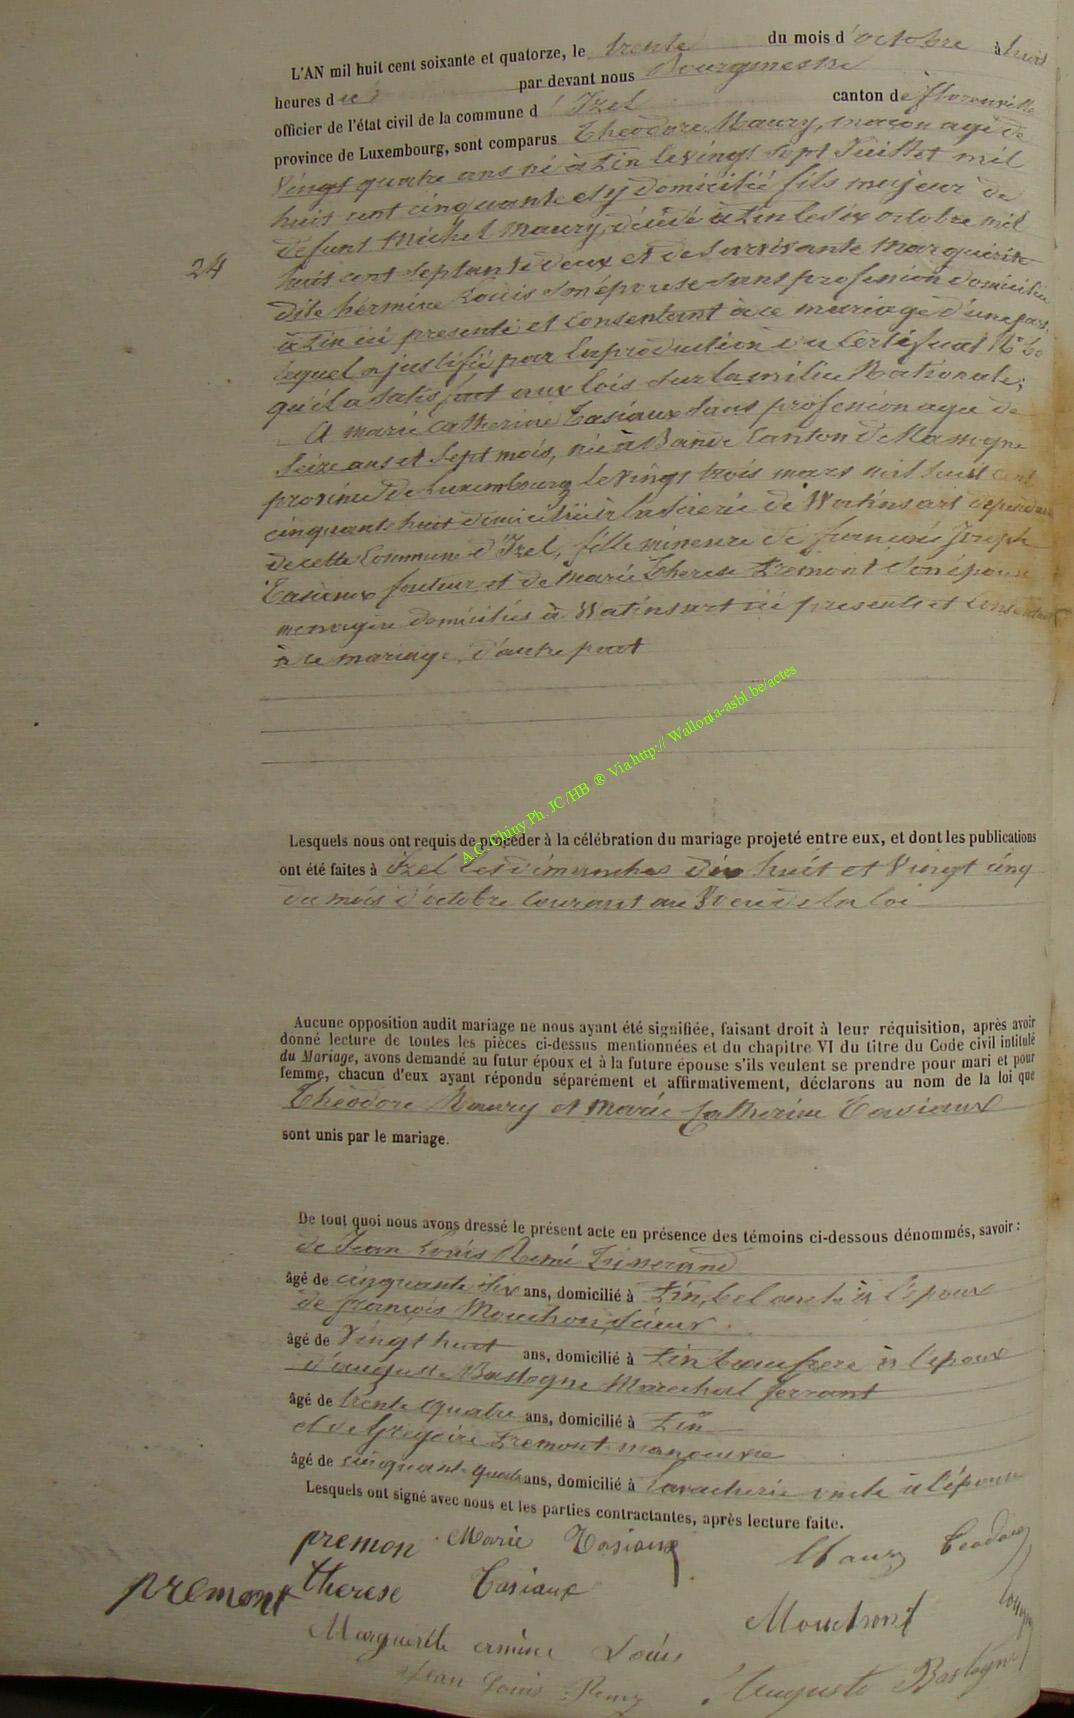 L'AN mil huit cent soixante et quatorze, le trente du mois d'octobre à huit
heures du par devant nous Bourgmestre
officier de l'état civil de la commune d'Izel canton de florenville
province de Luxembourg, sont comparus Théodore Maury, maçon agé de
Vingt quatre ans né à Pin le vingt sept Juillet mil
huit cent cinquante et y domicilié fils majeur de
defunt Michel Maury, décédé à Pin le six octobre mil
24 huit cent septante deux et de survivante Marguerite
dite hermine Louis son épouse sans profession domiciliée
à Pin ici presente et consentant à ce mariage d'une part,
lequel a justifié par la production du Certificat
qu'il a satisfait aux lois sur la milice Nationale;
A marie catherine Tasiaux sans profession agée de
Seize ans et Sept mois, née à Bande Canton de Nassogne
province de Luxembourg le vingt trois mars mil huit cent
cinquante huit domiciliée à la scierie de Watinsart dependant
de cette Commune d'Izel, fille mineure de françois Joseph
Tasiaux et de Marie Therese Premont son épouse
menagère domiciliés à Watinsart ici presents et consentant
à ce mariage, d'autre part
A.C. Chiny Ph. JC /HB ® Via http:// Wallonia-asbl.be/actes
Lesquels nous ont requis de procéder à la célébration du mariage projeté entre eux, et dont les publications
ont été faites à Izel les dimanches dix huit et Vingt cinq
du mois d'octobre Courant au Voeu de la loi
Aucune opposition audit mariage ne nous ayant été signifiée, faisant droit à leur réquisition, après avoir
donné lecture de toutes les pièces ci-dessus mentionnées et du chapitre VI du titre du Code civil intitulé
du Mariage, avons demandé au futur époux et à la future épouse s'ils veulent se prendre pour mari et pour
femme, chacun d'eux ayant répondu séparément et affirmativement, déclarons au nom de la loi que
Théodore Maury et Marie Catherine Tasiaux
sont unis par le mariage.
De tout quoi nous avons dressé le présent acte en présence des témoins ci-dessous dénommés, savoir :
de Jean Louis Remi Tisserand
âgé de cinquante six ans, domicilié à Pin, bel oncle à l'époux
de françois Mouchon,
âgé de Vingt huit ans, domicilié à Pin beau frere à l'époux
d'auguste Bastogne Marechal ferrant
âgé de trente quatre ans, domicilié à Pin
et de Grégoire Premont manoeuvre
âgé de cinquante quatre ans, domicilié à Lavacherie oncle à l'épouse
Lesquels ont signé avec nous et les parties contractantes, après lecture faite.
premon Marie Tasiaux Maury Teodore
premont therese Tasiaux Mouchon f
Marguerite ermine Louis
Jean Louis Remy Auguste Bastogne